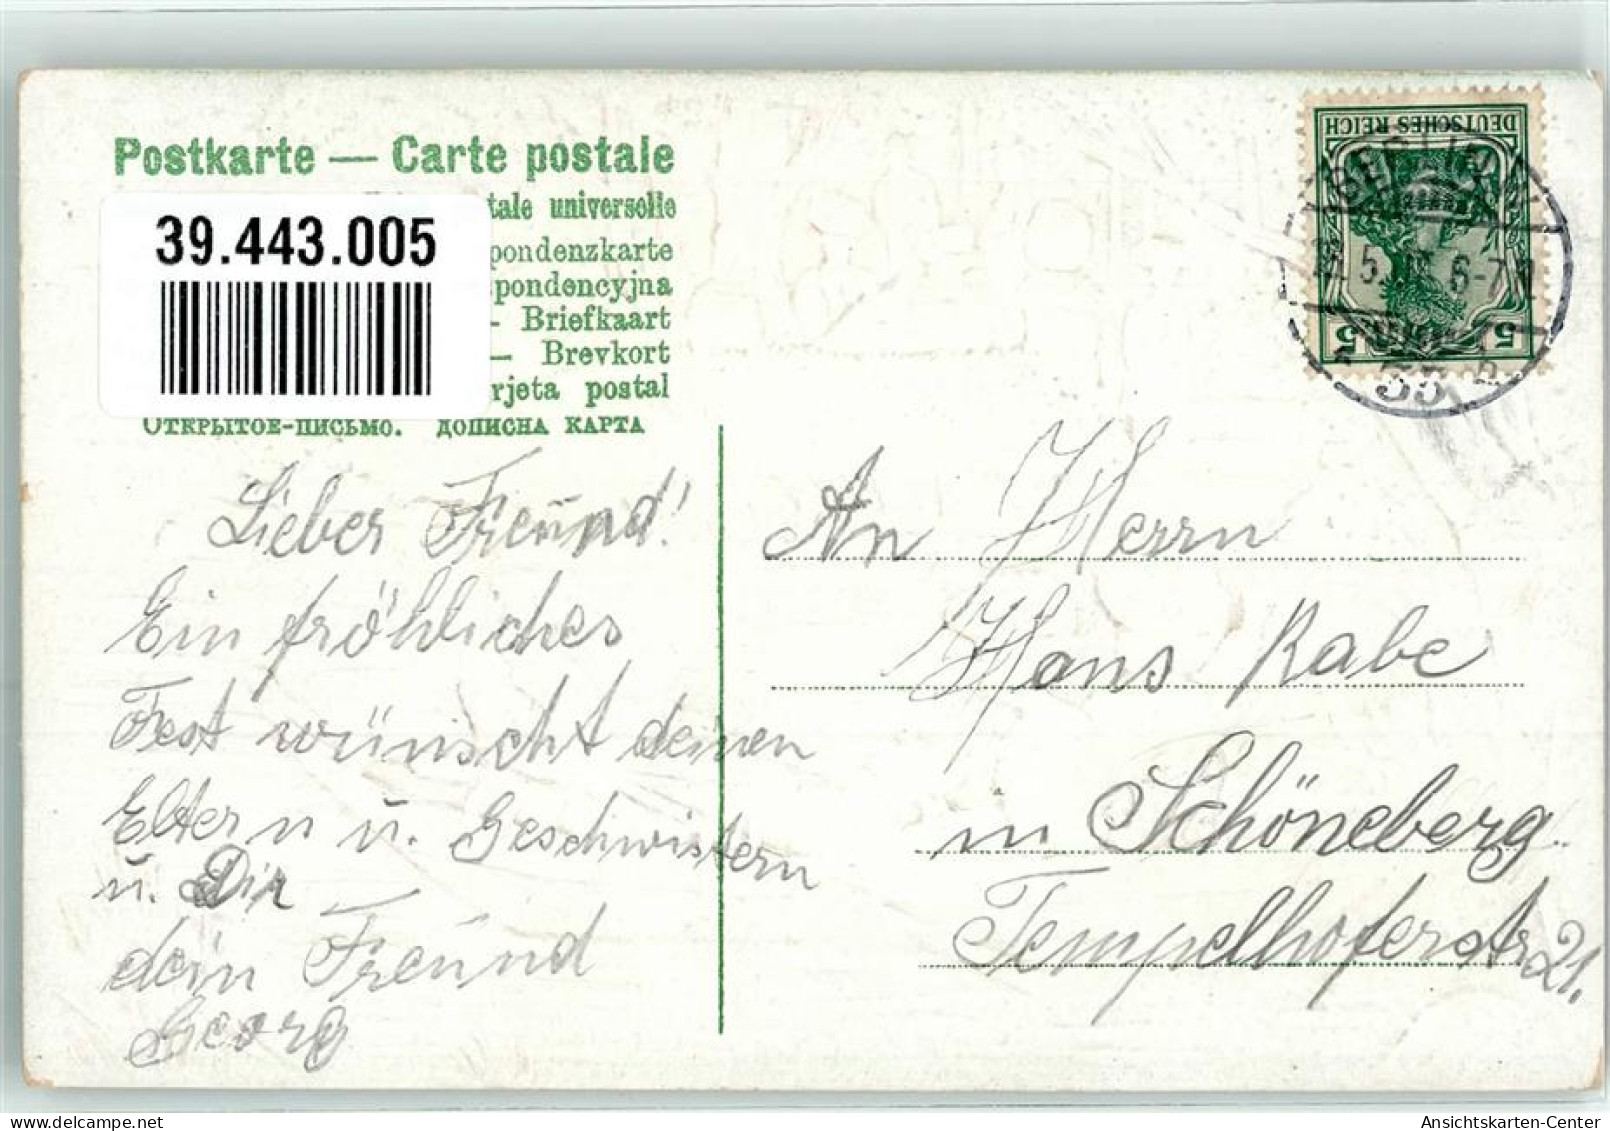 Postkarte — Carte postale
tale universelle
39.443.005
pondenzkarte
pondencyjna
- Briefkaart
— Brevkort
rjeta postal
Открытое-письмо. дописна карта
DEUTSCHES REICH
5 5
BERLIN
5. 6-7
35
Lieber Freund!
Ein fröhliches
Fest wünscht deinen
Eltern u. Geschwistern
u. Dir
dein Freund
Georg
An Herrn
Hans Rabe
in Schöneberg
Tempelhoferstr 21.
Ansichtskarten-Center